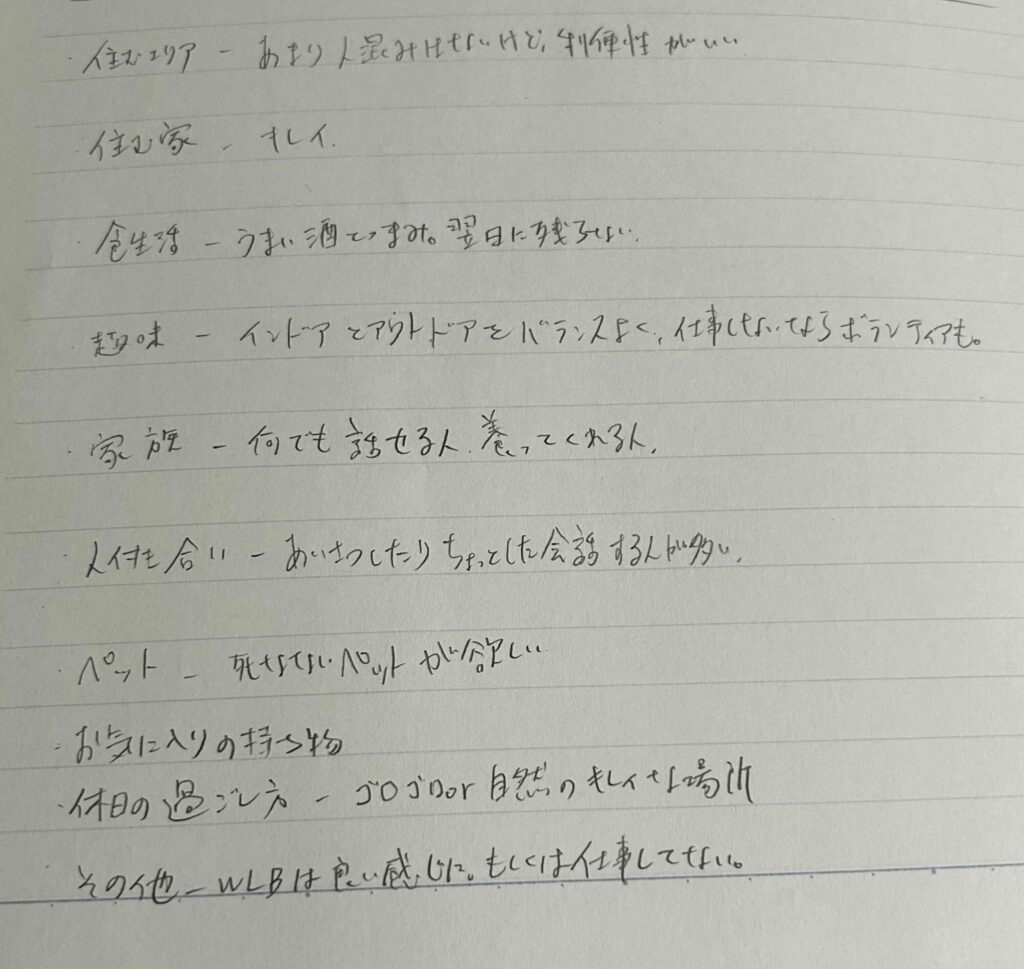 ・住むエリア － あまり人混みはないけど、利便性がいい
・住む家 － キレイ.
・食生活 － うまい酒とつまみ。翌日に残らない.
・趣味 － インドアとアウトドアをバランスよく、仕事しないならボランティアも。
・家族 － 何でも話せる人.養ってくれる人.
・人付き合い － あいさつしたりちょっとした会話する人が多い.
・ペット － 死なないペットが欲しい
・お気に入りの持ち物
・休日の過ごし方 － ゴロゴロor自然のキレイな場所
・その他 － WLBは良い感じに。もしくは仕事してない。